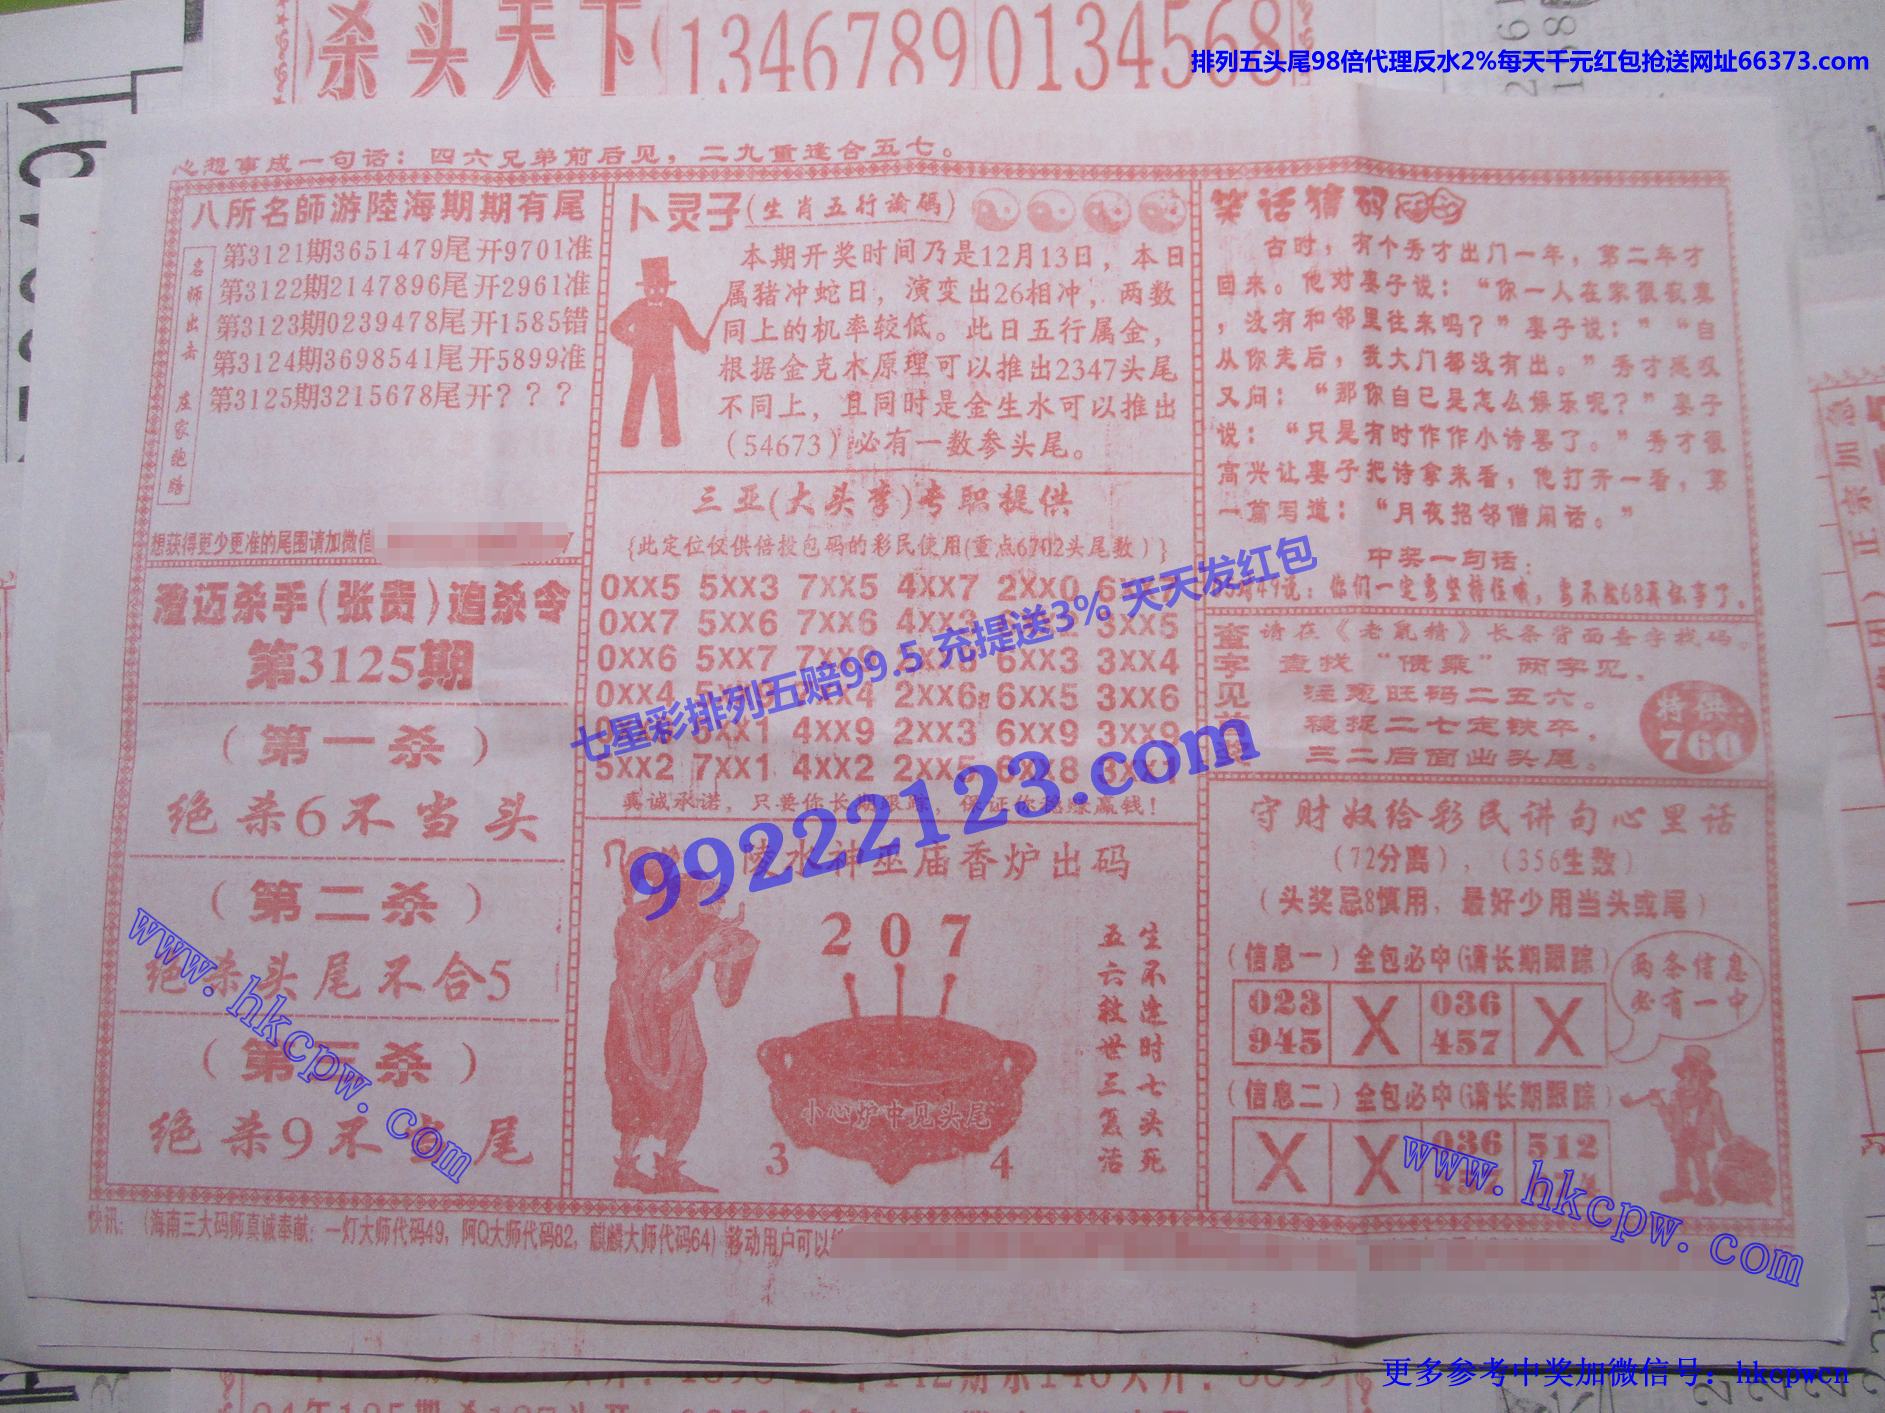 杀头天下
(13467890134568
排列五头尾98倍代理反水2%每天千元红包抢送网址66373.com
心想事成一句话：四六兄弟前后见，二九重逢合五七。
八所名師游陸海期期有尾
名师出击 庄家跑路
第3121期3651479尾开9701准
第3122期2147896尾开2961准
第3123期0239478尾开1585错
第3124期3698541尾开5899准
第3125期3215678尾开？？？
想获得更少更准的尾围请加微信
澄迈杀手(张贵)追杀令
第3125期
（第一杀）
绝杀6不当头
（第二杀）
绝杀头尾不合5
（第三杀）
绝杀9不当尾
卜灵子(生肖五行谕码)
本期开奖时间乃是12月13日，本日
属猪冲蛇日，演变出26相冲，两数
同上的机率较低。此日五行属金，
根据金克木原理可以推出2347头尾
不同上，且同时是金生水可以推出
（54673）必有一数参头尾。
三亚(大头李)专职提供
{此定位仅供倍投包码的彩民使用(重点6702头尾数)}
0XX5 5XX3 7XX5 4XX7 2XX0
0XX7 5XX6 7XX6 3XX5
0XX6 5XX7 6XX3 3XX4
0XX4 2XX6 6XX5 3XX6
4XX9 2XX3 6XX9 3XX9
5XX2 7XX1 4XX2 2XX5 6XX8 3XX1
真诚承诺，只要你长期跟踪，保证你稳赚赢钱！
陵水神巫庙香炉出码
207
小心炉中见头尾
3 4
生不逢时七头死
五六救世三复活
笑话猜码
古时，有个秀才出门一年，第二年才
回来。他对妻子说：“你一人在家很寂寞
，没有和邻里往来吗？”妻子说：”“自
从你走后，我大门都没有出。”秀才感叹
又问：“那你自己是怎么娱乐呢？”妻子
说：“只是有时作作小诗罢了。”秀才很
高兴让妻子把诗拿来看，他打开一看，第
一篇写道：“月夜招邻僧闲话。”
中奖一句话：
49说：你们一定要坚持住哦，要不被68再坏事了。
查字见
请在《老鼠精》长条背面查字找码。
查找“愤乘”两字见，
注意旺码二五六。
稳捉二七定铁卒，
三二后面出头尾。
特供
760
守财奴给彩民讲句心里话
（72分离），（356生数）
（头奖忌8慎用，最好少用当头或尾）
(信息一) 全包必中(请长期跟踪)
023 X 036 X
945 457
两条信息
必有一中
(信息二) 全包必中(请长期跟踪)
X X 036 512
快讯：(海南三大码师真诚奉献：一灯大师代码49，阿Q大师代码82，麒麟大师代码64) 移动用户可以
七星彩排列五赔99.5 充提送3% 天天发红包
99222123.com
www.hkcpw.com
www.hkcpw.com
更多参考中奖加微信号：hkcpwcn